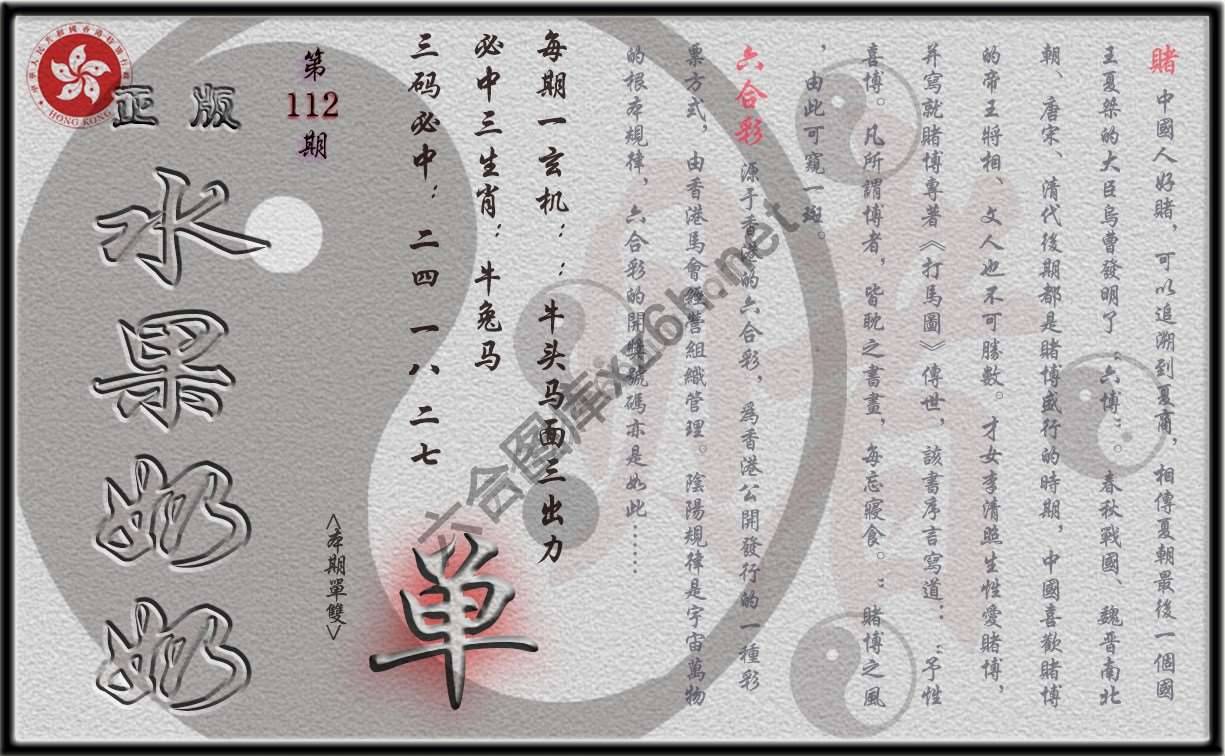 賭 中國人好賭，可以追溯到夏商，相傳夏朝最後一個國
王夏桀的大臣烏曹發明了“六博”。春秋戰國、魏晋南北
朝、唐宋、清代後期都是賭博盛行的時期，中國喜歡賭博
的帝王將相、文人也不可勝數。才女李清照生性愛賭博，
并寫就賭博專著《打馬圖》傳世，該書序言寫道：“予性
喜博。凡所謂博者，皆耽之書畫，每忘寢食。”賭博之風
，由此可窺一斑。
六合彩 源于香港的六合彩，為香港公開發行的一種彩
票方式，由香港馬會經營組織管理。陰陽規律是宇宙萬物
的根本規律，六合彩的開獎號碼亦是如此……
每期一玄机：：牛头马面三出力
必中三生肖：牛兔马
三码必中：二四 一八 二七
单
<本期單雙>
第
112
期
正版
水果奶奶
HONG KONG
六合图库x16h.net